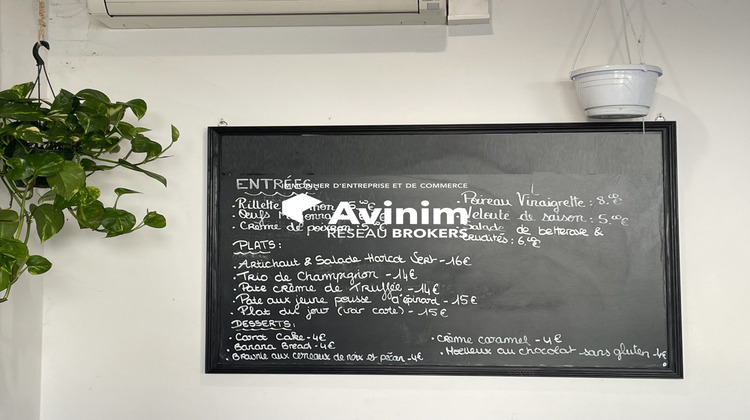 ENTRÉES:
IMMOBILIER D'ENTREPRISE ET DE COMMERCE
Avinim
RÉSEAU BROKERS
. Rillette
. Oeufs
. Crème de poisson
. Poireau Vinaigrette : 8.00
Velouté de saison : 5.00
Salade de betterave &
crudités : 6.00
PLATS :
. Artichaut & Salade Haricot Vert - 16€
. Trio de Champignon - 14€
. Pate crème de Truffée - 14€
. Pate aux jeune pousse d'épinard - 15€
. Plat du jour (voir carte) - 15€
DESSERTS :
. Carrot Cake - 4€
. Banana Bread - 4€
. Brownie aux cerneaux de noix et pécan - 4€
. Crème caramel - 4€
. Moelleux au chocolat sans gluten - 4€